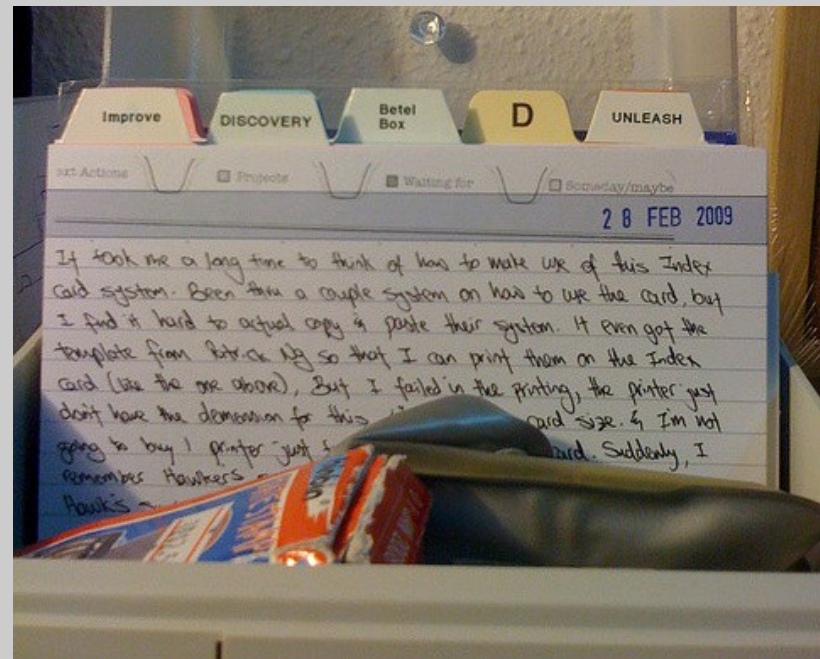 Improve
DISCOVERY
Betel
Box
D
UNLEASH
ext Actions
Projects
Waiting for
Someday/maybe
28 FEB 2009
It took me a long time to think of how to make use of this Index
Card system. Been thru a couple system on how to use the card, but
I find it hard to actual copy & paste their system. It even got the
template from Patrick Ng so that I can print them on the Index
card (like the one above), But I failed in the printing, the printer just
don't have the demension for this card size. & I'm not
going to buy 1 printer just card. Suddenly, I
remember Hawkers
Hawk's